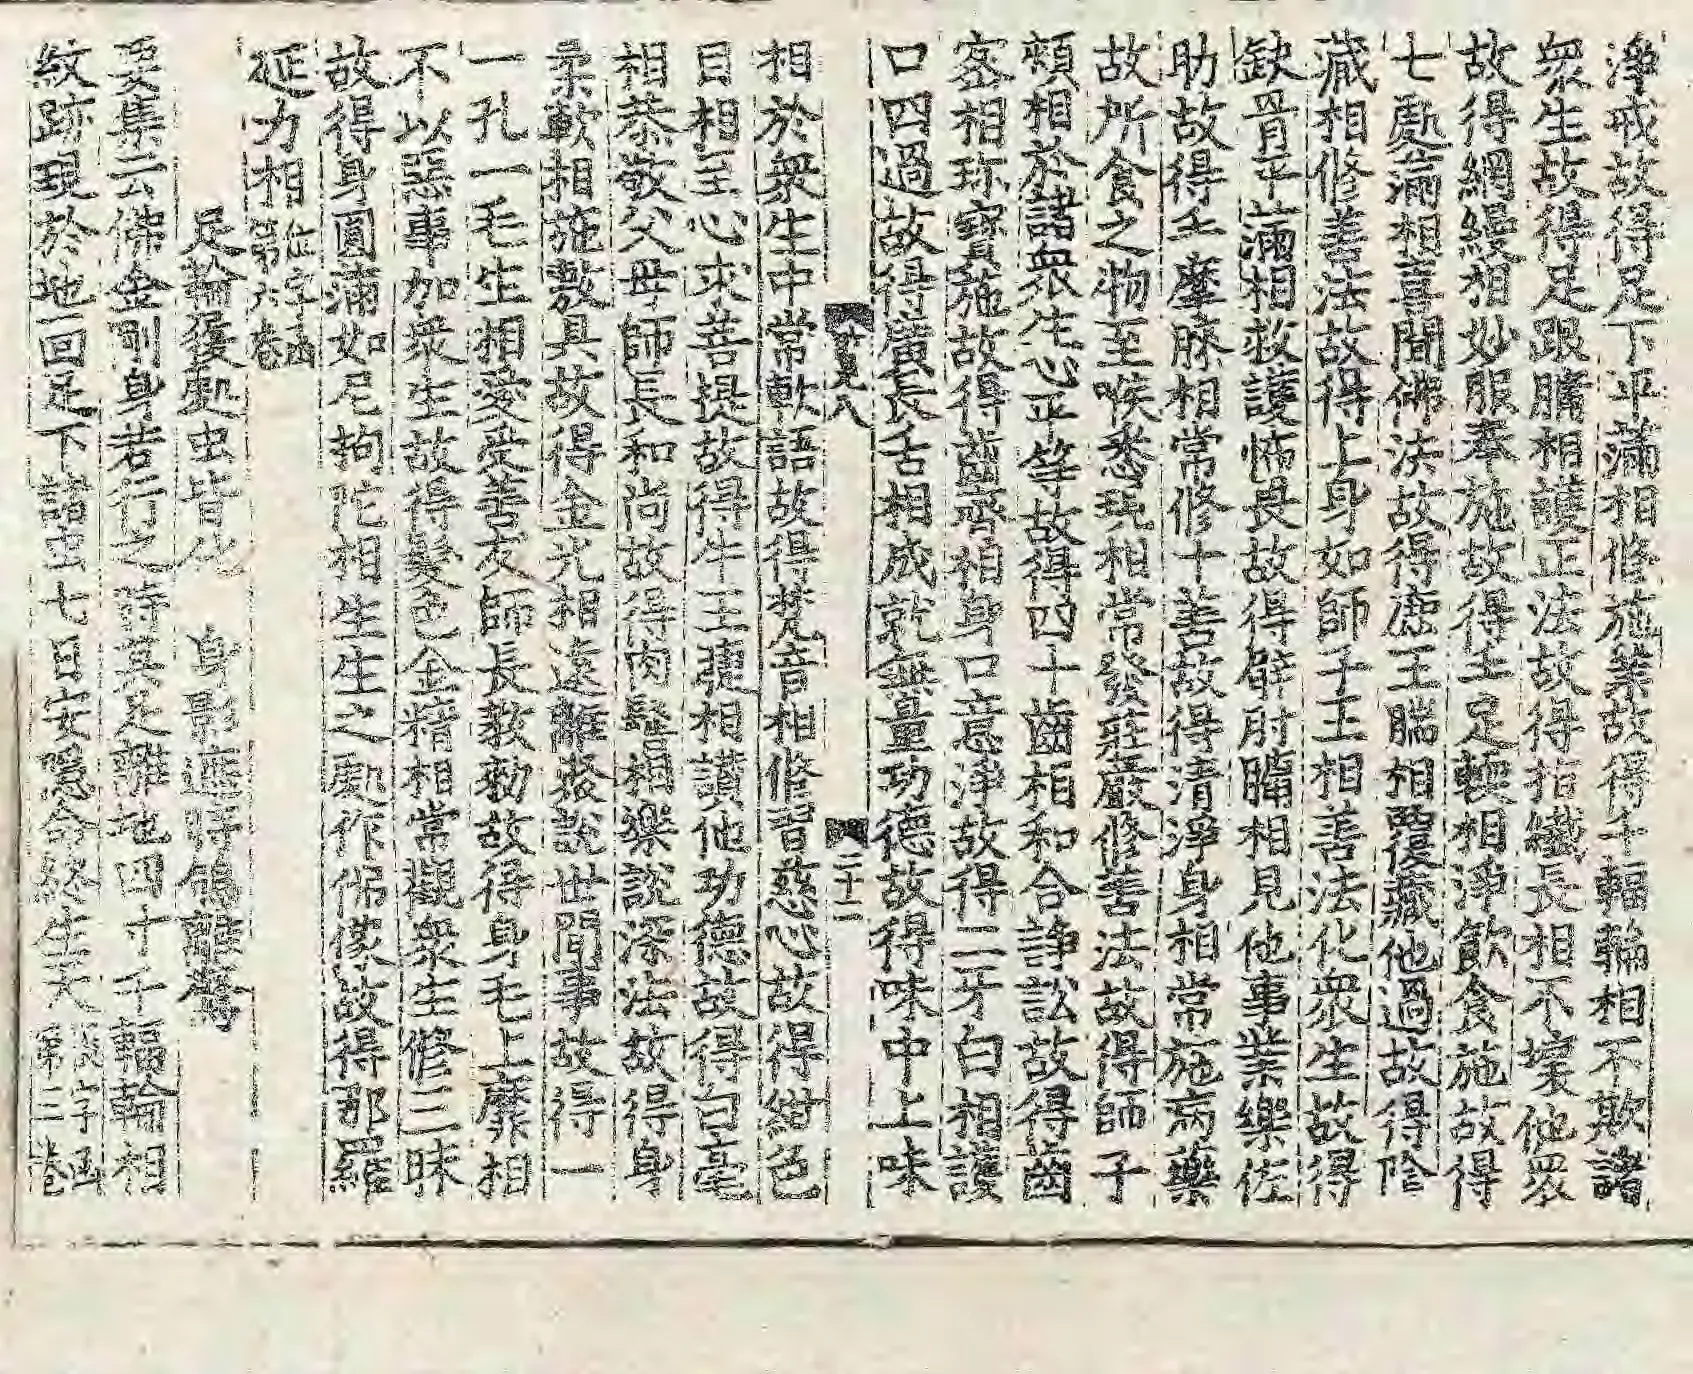 淨戒故得足下平滿相修施業故得千輻輪相不欺諸
衆生故得足跟𦟛相護正法故得指纖長相不壞他眾
故得網縵相妙服奉施故得手足輭相淨飲食施故得
七處滿相喜聞佛法故得鹿王腨相覆藏他過故得陰
藏相修善法故得上身如師子王相善法化衆生故得
缺骨平滿相救護怖畏故得臂肘𦟛相見他事業樂佐
助故得手摩膝相常修十善故得清淨身相常施病藥
故所食之物至喉悉現相常發莊嚴修善法故得師子
頰相於諸衆生心平等故得四十齒相和合諍訟故得齒
密相珎寶施故得齒齊相身口意淨故得二牙白相護
口四過故得廣長舌相成就無量功德故得味中上味
八
二十二
相於衆生中常軟語故得梵音相修習慈心故得紺色
目相至心求菩提故得牛王𥇒相讃他功德故得白毫
相恭敬父母師長和尚故得肉髻相樂說深法故得身
柔軟相施敷具故得金光相遠離𣣋說世閒事故得一
一孔一毛生相愛受善友師長教勑故得身毛上靡相
不以惡事加衆生故得髮色金精相常觀衆生修三昧
故得身圓滿如尼拘陀相生生之處作佛像故得那羅
延力相
第六卷
足輪後處虫皆化　身影遮時鴿離驚
要集云佛金剛身若行之時其足離地四寸千輻輪相
紋跡現於地面足下諸虫七日安隱命終生天
第三卷